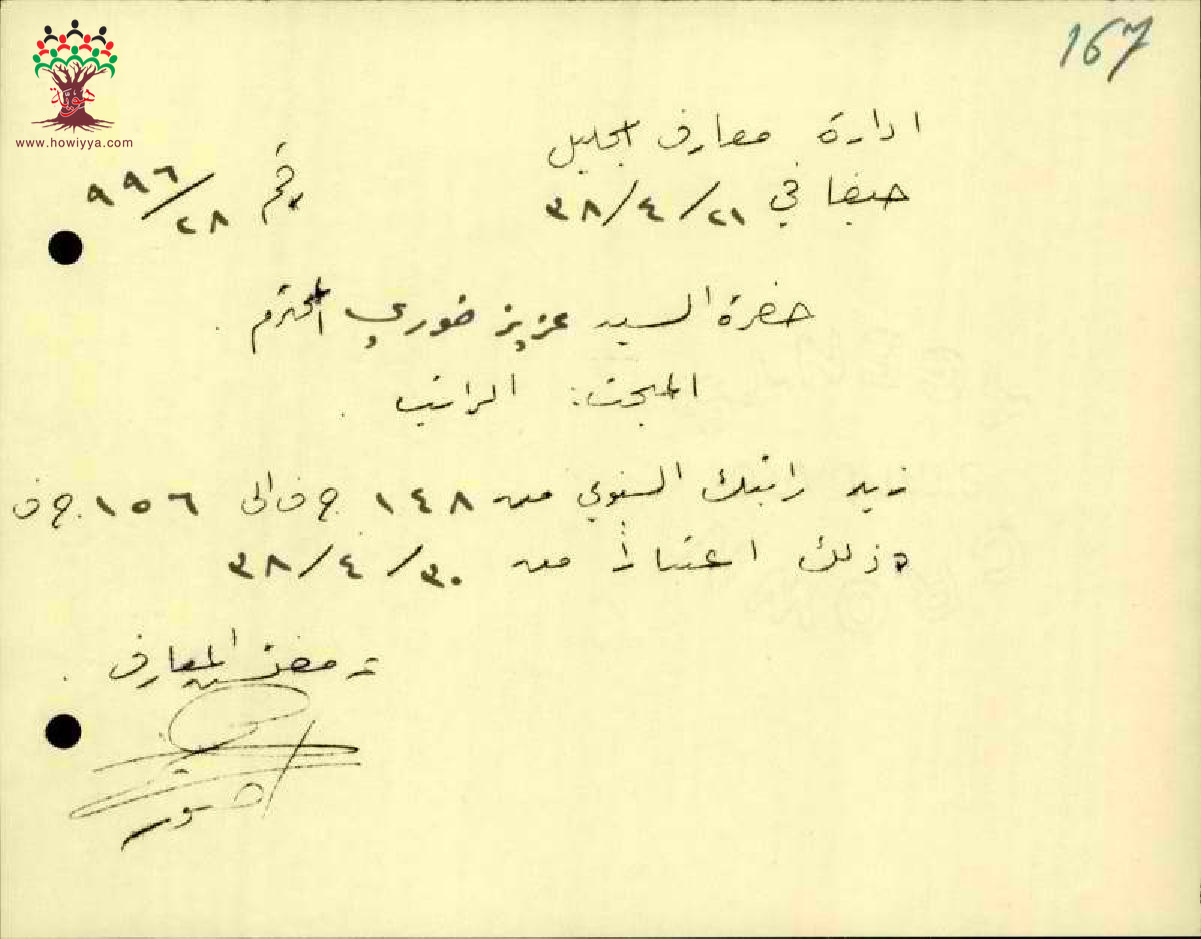 167
هوية
www.howiyya.com
ادارة معارف الجليل
حيفا في ٢١/٤/٣٨ رقم ٩٩٦/٢٨
حضرة السيد عزيز خوري المحترم.
المبحث: الراتب.
زيد راتبك السنوي من ١٤٨ ج ف الى ١٥٦ ج ف
وذلك اعتباراً من ٣٠/٤/٣٨
مفتش المعارف